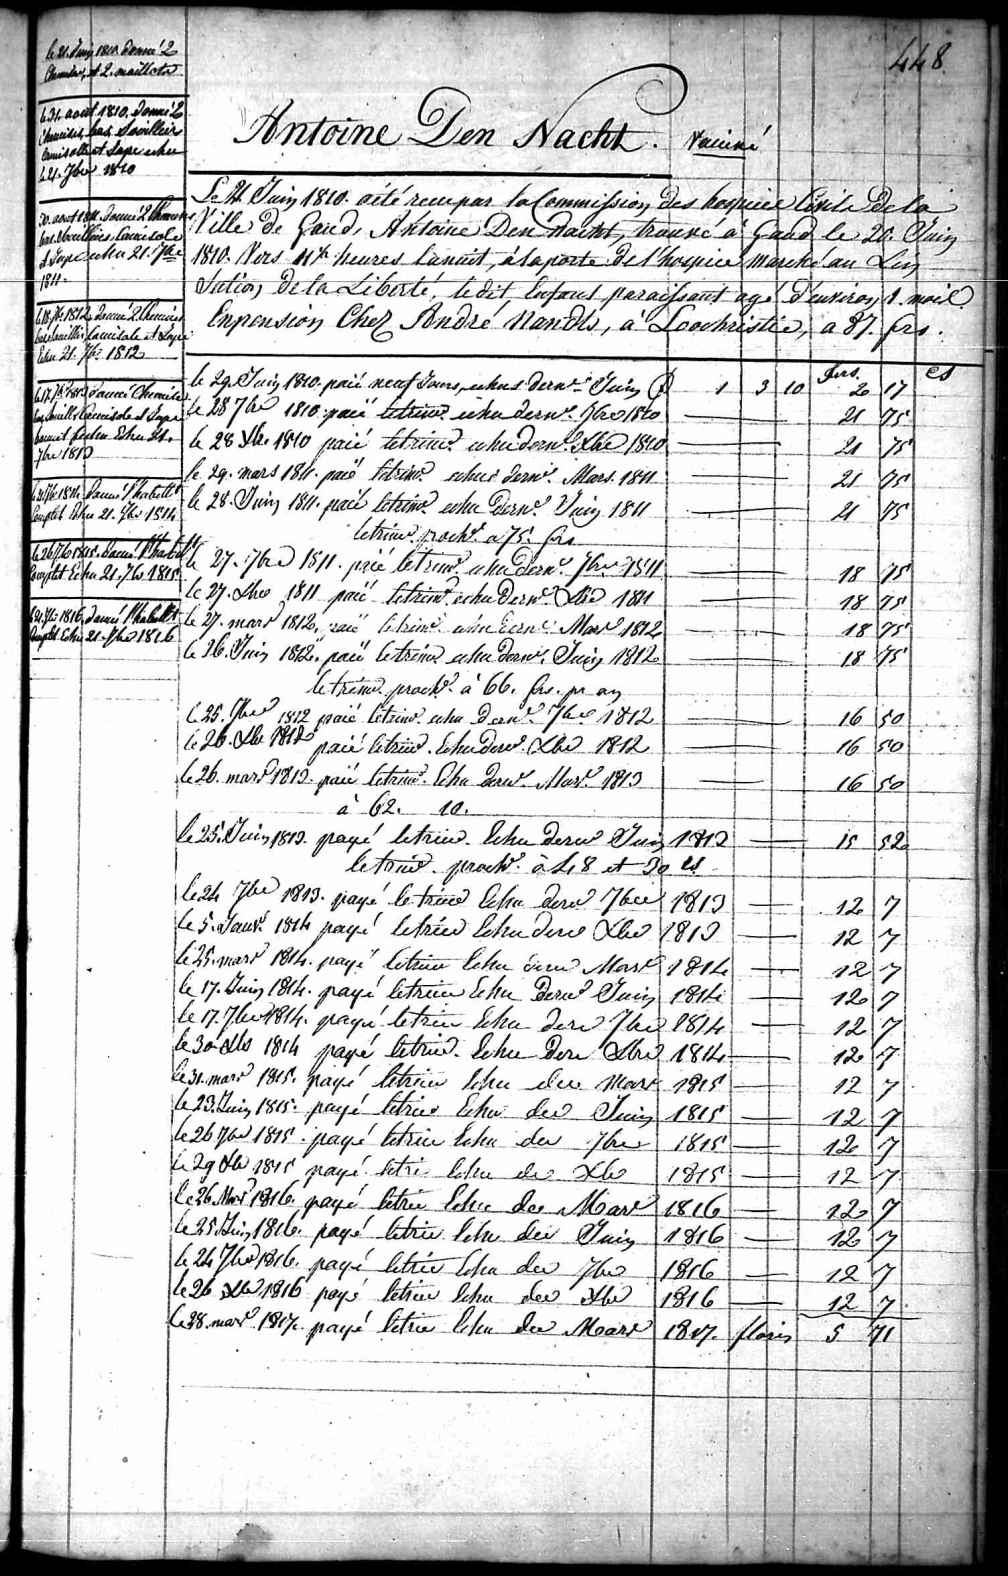 448
le 21. Juin 1810 donné 2
Chemises, et 2. maillots
le 31. aout 1810. donné 2
Chemises, bas, Soulliers
Camisolle et Jupe echu
le 21. 7bre 1810
30. aout 1811. donné 2 Chemises
bas, Soulliers, Camisole
et Jupe echu 21. 7bre
1811.
le 18. 7bre 1812 donné 2 Chemises
bas Soulliers Camisole et Jupe
Echu 21. 7bre 1812
le 17. 7bre 1813 donné Chemise
bas, Soulls Camisole et Jupe
Echu 21.
7bre 1813
le 21. 7bre 1814. Donné l'habillt
Complet Echu 21. 7bre 1814
le 26 7bre 1815. Donné l'habillt
Complet Echu 21. 7bre 1815
le 21. 7bre 1816, donné l'habillt
Complt Echu 21. 7bre 1816
Antoine Den Nacht. Vacciné
Le 21 Juin 1810. a été recu par la Commission des hospices Civils de la
Ville de Gand, Antoine Den Nacht, trouvé à Gand le 20. Juin
1810. Vers 11 1/2 heures la nuit, à la porte de l'hospice marché au Lin
Section de la Liberté, ledit Enfant paraissant agé d'environ 1. mois
En pension Chez André Nandts, à Loochristie, a 87. frs.
frs. cs
le 29. Juin 1810. paié neuf Jours, echus dernr. Juin 1 3 10 2 17
le 28 7bre 1810 paié le trimr. echu dernr. 7bre 1810 21 75
le 28 Xbr. 1810 paié le trimr. echu dernr. Xbre 1810 21 75
le 29. mars 1811. paié le trimr. echu dernr. Mars. 1811 21 75
le 28. Juin 1811. paié le trimr. echu dernr. Juin 1811 21 75
le trimr. prochr. a 75. frs
le 27. 7bre 1811. paié le trimr. echu dernr. 7bre 1811 18 75
le 27. Xbre 1811 paié le trimr. echu dernr. Xbre 1811 18 75
le 27. mars 1812, paié le trimr. echu dernr. Mars 1812 18 75
le 26. Juin 1812. paié le trimr. echu dernr. Juin 1812 18 75
le trimr. prochr. à 66. frs. pr an
le 25. 7bre 1812 paié le trimr. echu dernr. 7bre 1812 16 50
le 26. Xbre 1812 paié le trimr. Echu dernr. Xbre 1812 16 50
le 26. mars 1813. paié le trimr. Echu dernr. Mars. 1813 16 50
à 62. 10.
le 25. Juin 1813. payé le trim. Echu dernr Juin 1813 15 52
le trimr. prochr. à 48 et 30 cs
le 24 7bre 1813. payé le trim Echu dern 7bre 1813 12 7
le 5. Janvr. 1814 payé le trim Echu dern Xbre 1813 12 7
le 25. mars 1814. payé le trim Echu dern Mars 1814 12 7
le 17. Juin 1814. payé le trim Echu dernr Juin 1814 12 7
le 17. 7bre 1814. payé le trim Echu dern 7bre 1814 12 7
le 30 Xbr 1814 payé le trim. Echu dern Xbre 1814 12 7
le 31. mars 1815. payé le trim Echu der mars 1815 12 7
le 23. Juin 1815. payé le trim Echu der Juin 1815 12 7
le 26 7bre 1815. payé le trim Echu der 7bre 1815 12 7
le 29 Xbr 1815 payé le tri. Echu de Xbr 1815 12 7
le 26 Mars 1816. payé le trim Echu der Mars 1816 12 7
le 25 Juin 1816. payé le trim Echu der Juin 1816 12 7
le 24 7bre 1816. payé le trim Echu der 7bre 1816 12 7
le 26 Xbr 1816 payé le trim Echu der Xbr 1816 12 7
le 28. mars 1817. payé le trim Echu der Mars 1817. florins 5 71